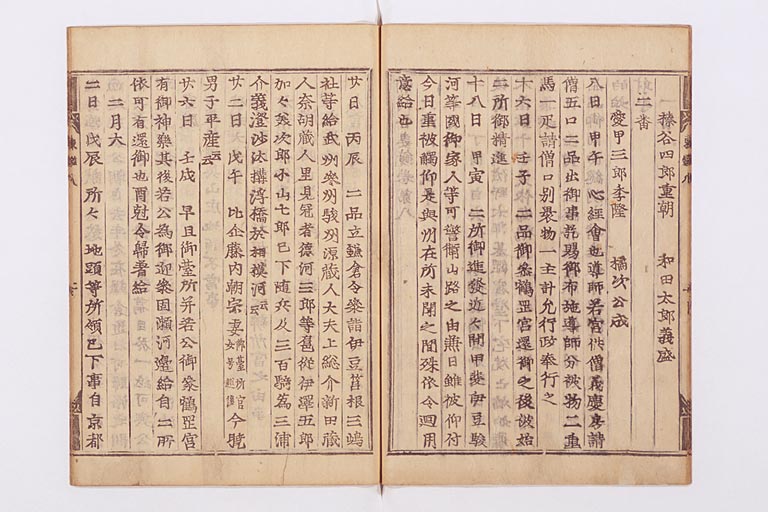 榛谷四郎重朝　和田太郎義盛
二番
愛甲三郎季隆　橘次公成
八日　甲午　心經會也導師若宮供僧義慶房請
僧五口二品出御事訖賜御布施導師分被物二重
馬一疋請僧口別裹物一主計允行政奉行之
十六日　壬子　二品御參鶴罡宮還御之後被始
二所御精進
十八日　甲寅　二所御進發近々聞甲斐伊豆駿
河等國御家人等可警衛山路之由兼日雖被仰付
今日重被觸仰是與州在所未聞之間殊依令廻用
意給也
廿日　丙辰　二品立鎌倉令參詣伊豆筥根三嶋
社等給武州參州駿州源藏人大夫上総介新田藏
人奈胡藏人里見冠者德河三郎等舊從伊澤五郎
加々美次郎小山七郎已下隨兵及三百騎為三浦
介義澄沙汰搆浮橋於相摸河云云
廿二日　戊午　比企藤内朝宗妻御臺所官女号越後今曉
男子平産云云
廿六日　壬戌　早旦御臺所并若公御參鶴罡宮
有御神樂其後若公為御迎參固瀬河邊給自二所
依可有還御也酉尅令歸著給
二月大
二日　戊辰　所々地頭等所領已下事自京都
東鑑八